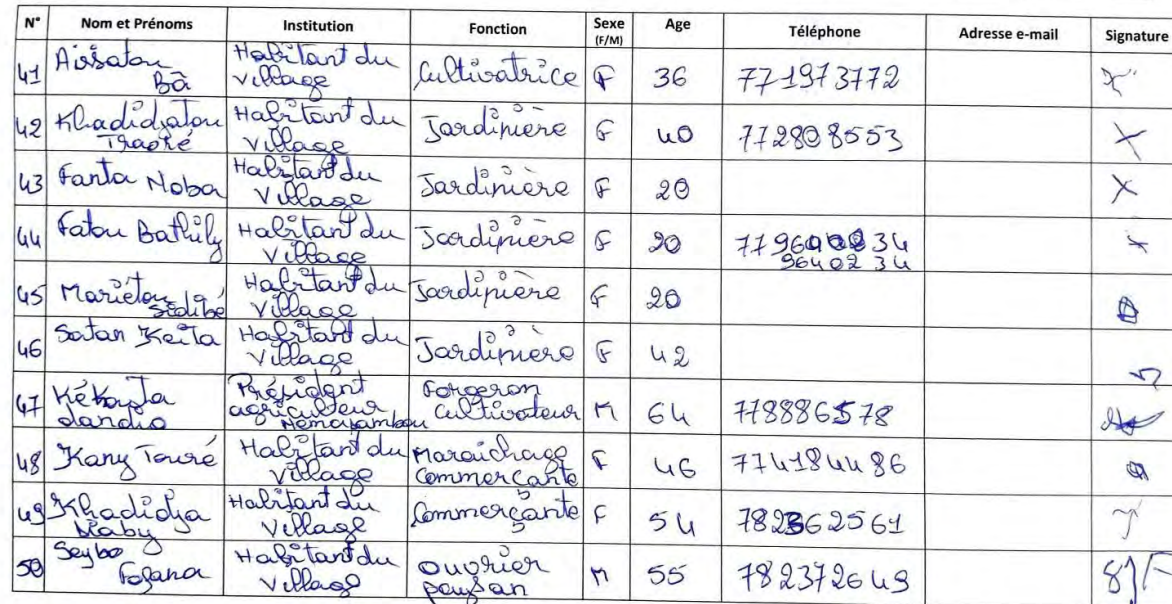 N° Nom et Prénoms Institution Fonction Sexe (F/M) Age Téléphone Adresse e-mail Signature
41 Aissatou Bâ Habitant du Village Cultivatrice F 36 771973772
42 Khadidjatou Traoré Habitant du Village Jardinière F 40 772808553
43 Fanta Noba Habitant du Village Jardinière F 20
44 Fatou Bathily Habitant du Village Jardinière F 20 7796400234
96402 34
45 Mariétou Sidibé Habitant du Village Jardinière F 20
46 Satan Keita Habitant du Village Jardinière F 42
47 Kékouta Président agriculteur Forgeron Cultivateur M 64 778886578
48 Kany Touré Habitant du Village Maraichage Commerçante F 46 774184486
49 Khadidja Habitant du Village Commerçante F 54 782362561
50 Seybo Fofana Habitant du Village ouvrier paysan M 55 782372649